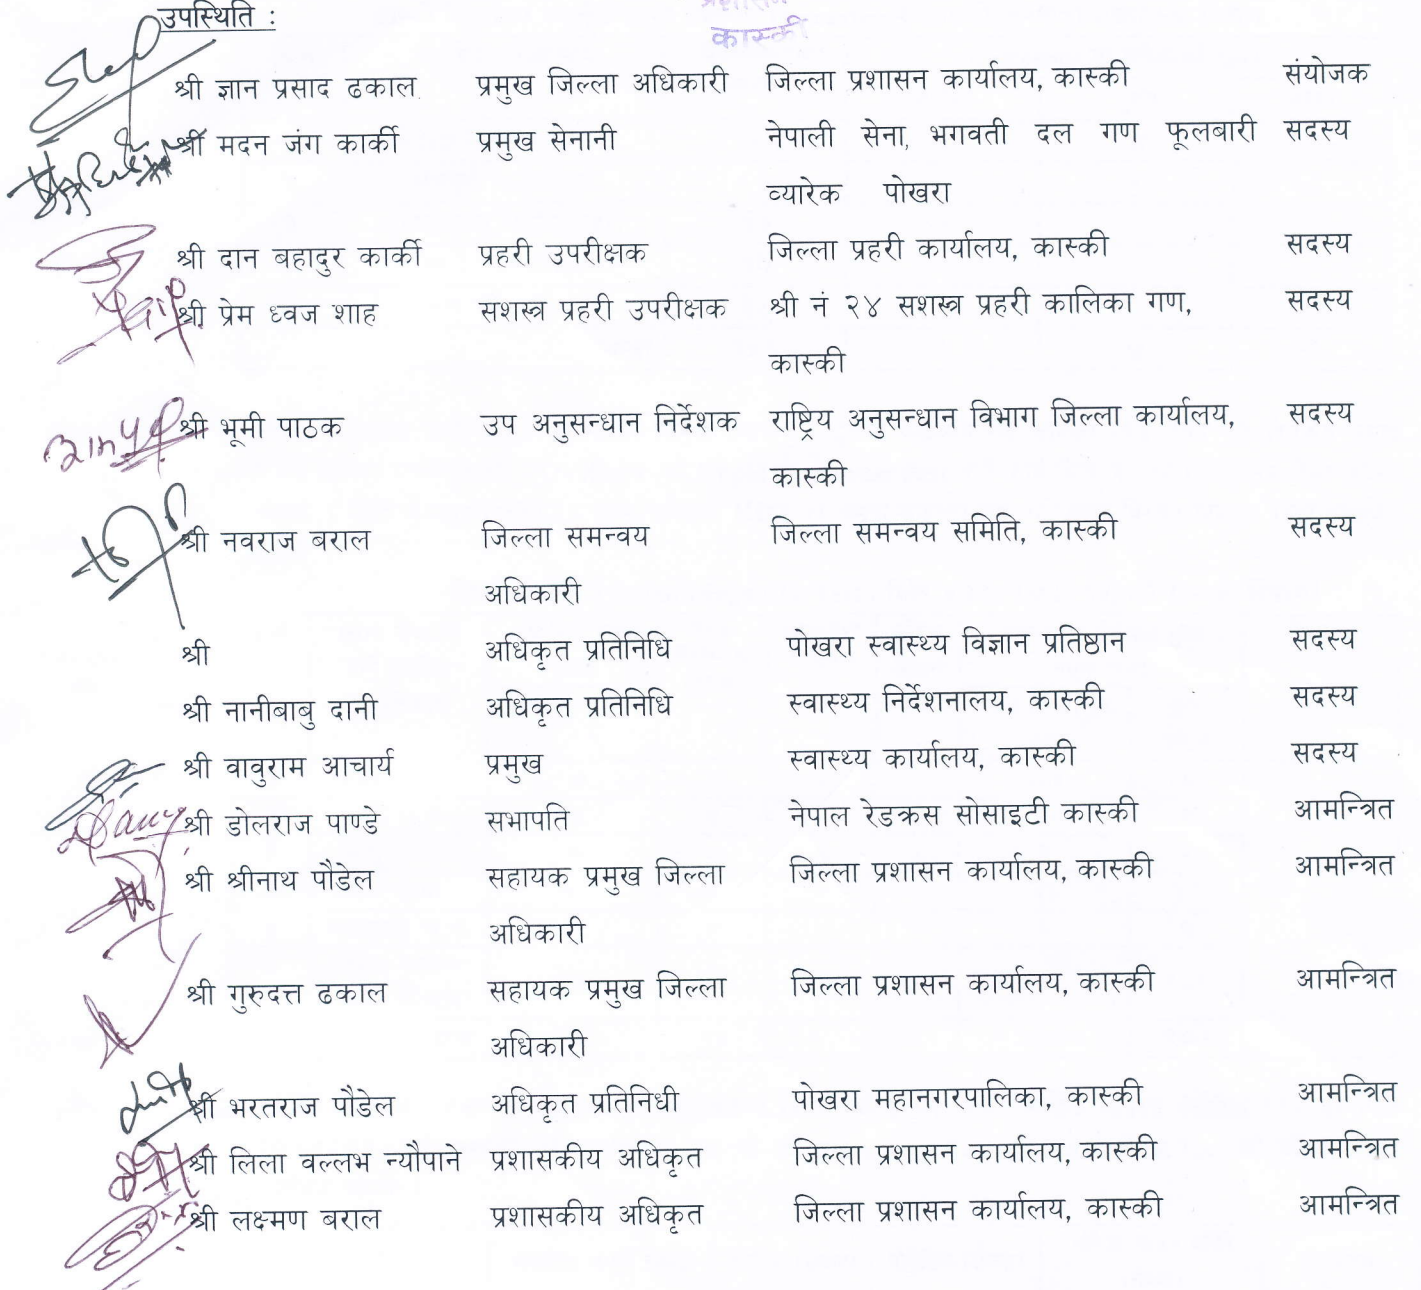 उपस्थिति :
कास्की
श्री ज्ञान प्रसाद ढकाल प्रमुख जिल्ला अधिकारी जिल्ला प्रशासन कार्यालय, कास्की संयोजक
श्री मदन जंग कार्की प्रमुख सेनानी नेपाली सेना, भगवती दल गण फूलबारी सदस्य
व्यारेक पोखरा
श्री दान बहादुर कार्की प्रहरी उपरीक्षक जिल्ला प्रहरी कार्यालय, कास्की सदस्य
श्री प्रेम ध्वज शाह सशस्त्र प्रहरी उपरीक्षक श्री नं २४ सशस्त्र प्रहरी कालिका गण, सदस्य
कास्की
श्री भूमी पाठक उप अनुसन्धान निर्देशक राष्ट्रिय अनुसन्धान विभाग जिल्ला कार्यालय, सदस्य
कास्की
श्री नवराज बराल जिल्ला समन्वय जिल्ला समन्वय समिति, कास्की सदस्य
अधिकारी
श्री अधिकृत प्रतिनिधि पोखरा स्वास्थ्य विज्ञान प्रतिष्ठान सदस्य
श्री नानीबाबु दानी अधिकृत प्रतिनिधि स्वास्थ्य निर्देशनालय, कास्की सदस्य
श्री वावुराम आचार्य प्रमुख स्वास्थ्य कार्यालय, कास्की सदस्य
श्री डोलराज पाण्डे सभापति नेपाल रेडक्रस सोसाइटी कास्की आमन्त्रित
श्री श्रीनाथ पौडेल सहायक प्रमुख जिल्ला जिल्ला प्रशासन कार्यालय, कास्की आमन्त्रित
अधिकारी
श्री गुरुदत्त ढकाल सहायक प्रमुख जिल्ला जिल्ला प्रशासन कार्यालय, कास्की आमन्त्रित
अधिकारी
श्री भरतराज पौडेल अधिकृत प्रतिनिधी पोखरा महानगरपालिका, कास्की आमन्त्रित
श्री लिला वल्लभ न्यौपाने प्रशासकीय अधिकृत जिल्ला प्रशासन कार्यालय, कास्की आमन्त्रित
श्री लक्ष्मण बराल प्रशासकीय अधिकृत जिल्ला प्रशासन कार्यालय, कास्की आमन्त्रित